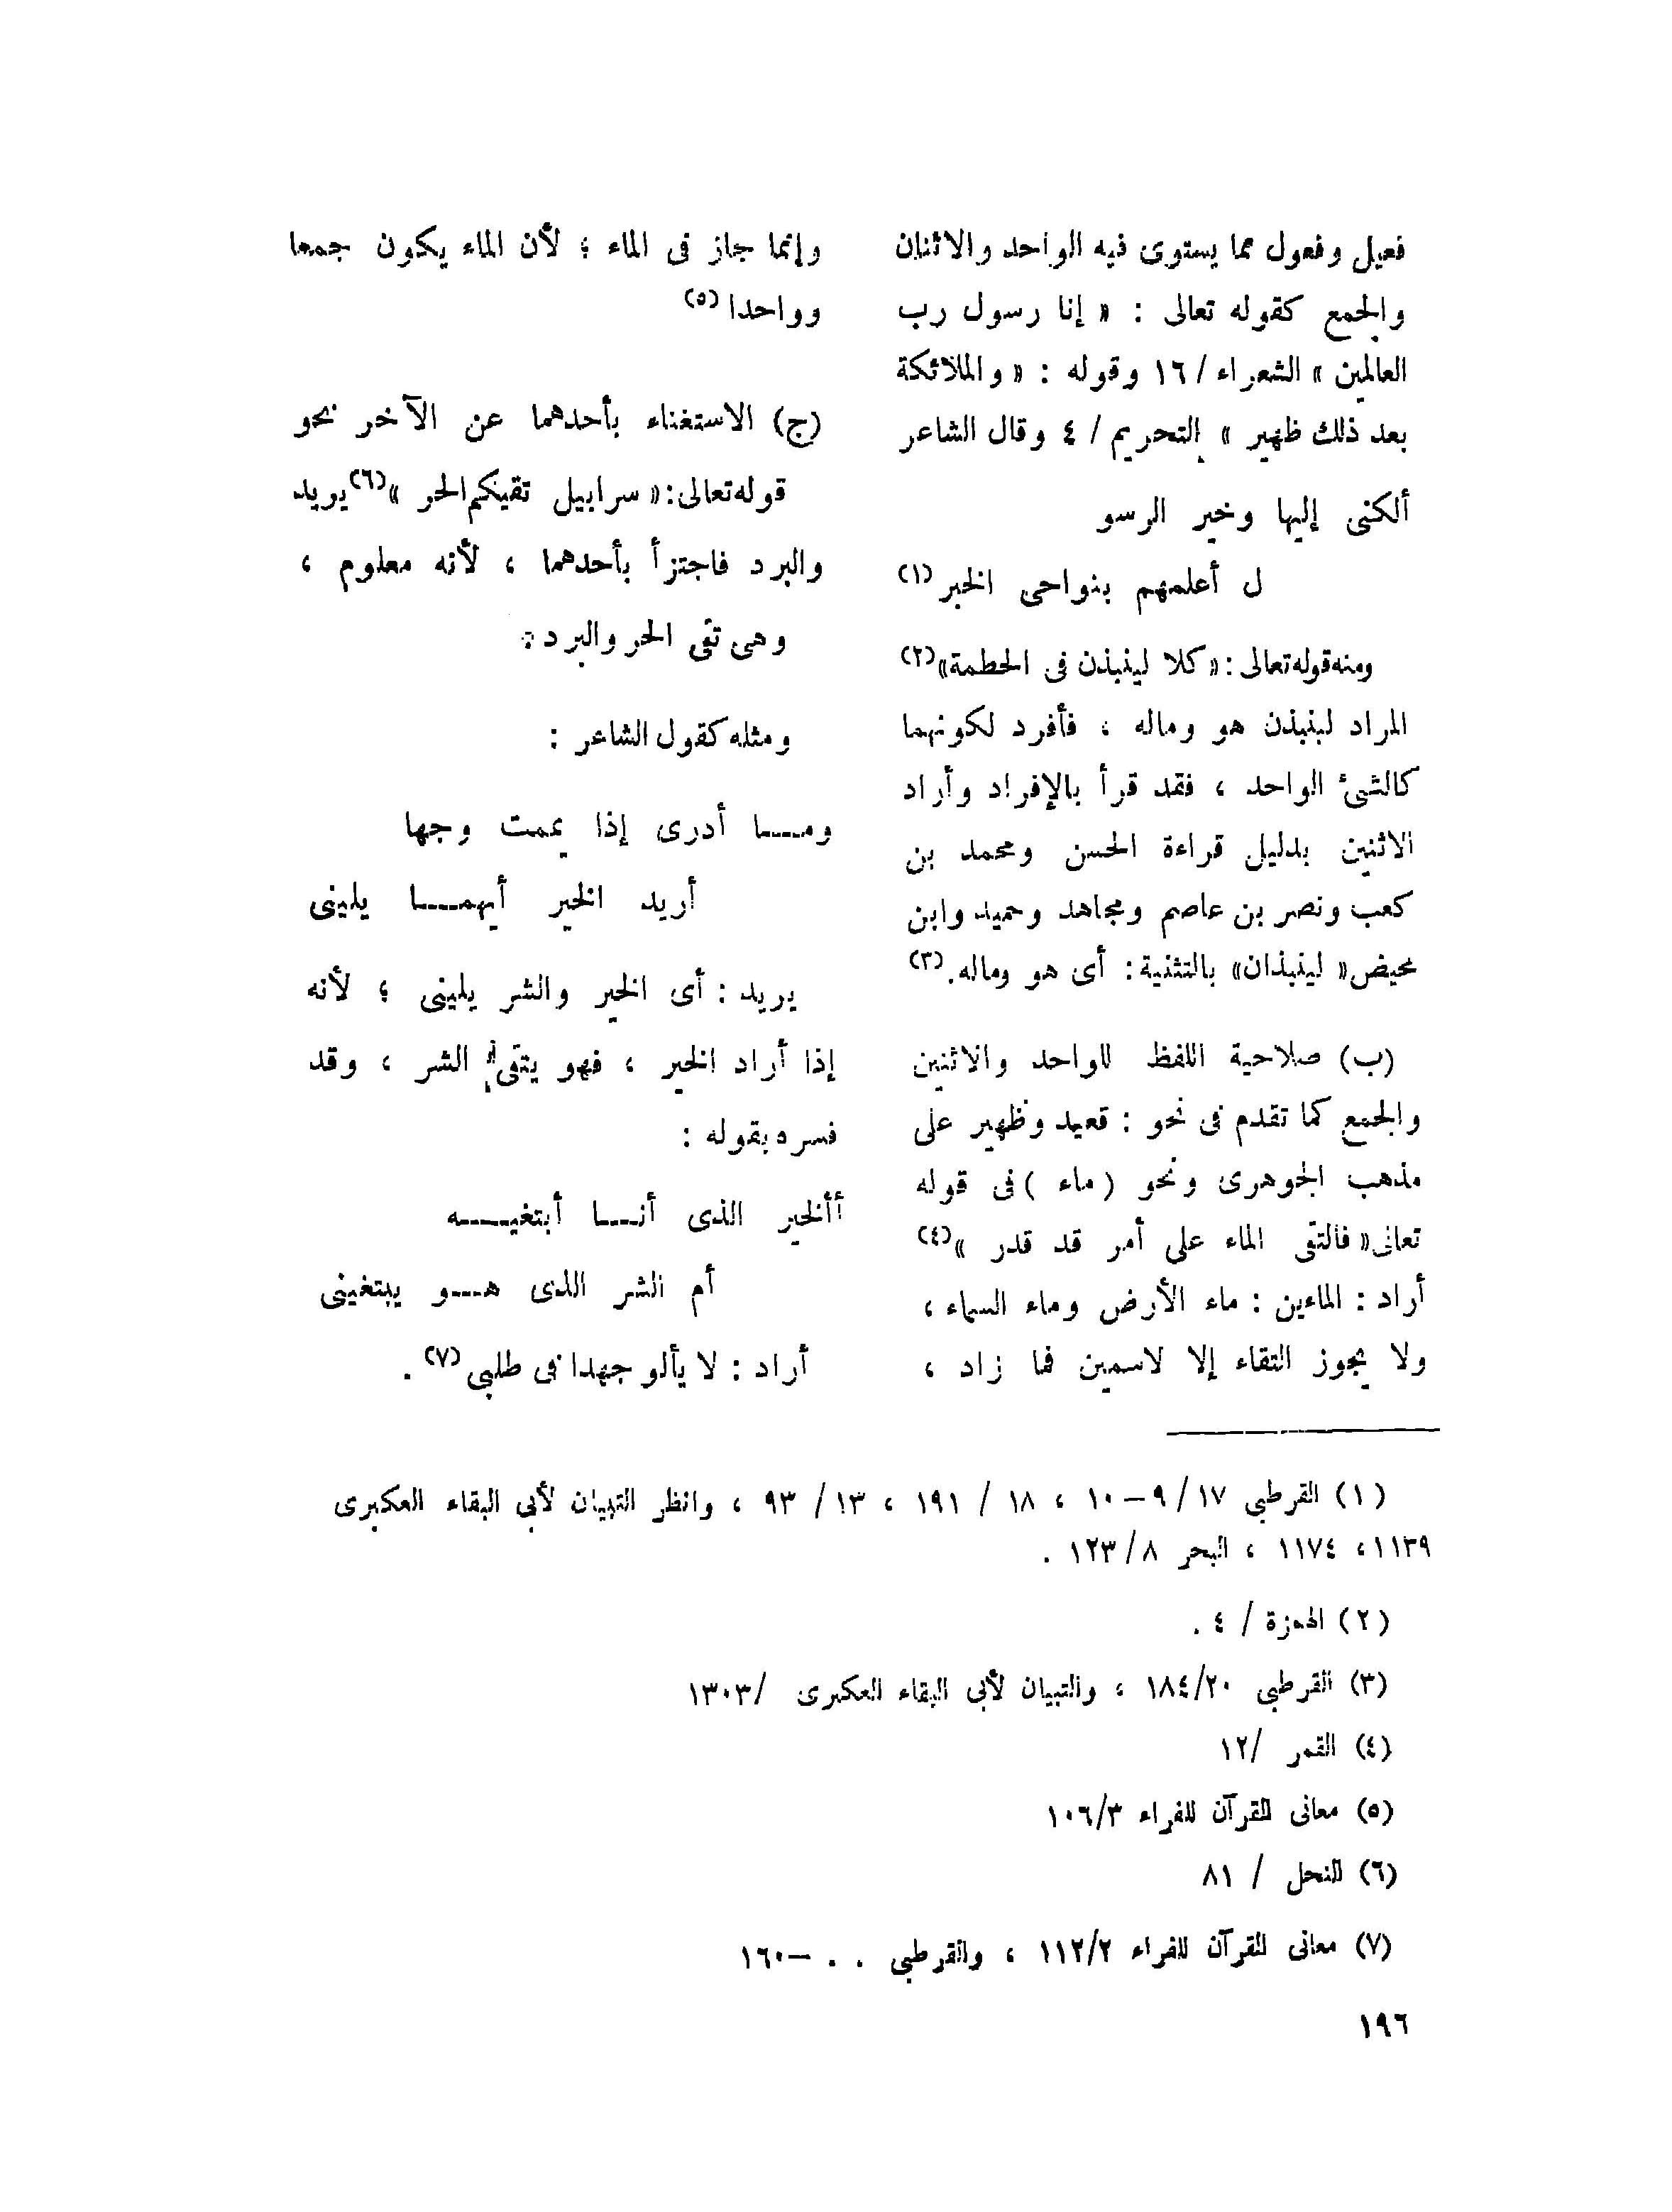 فعيل وفعول مما يستوى فيه الواحد والاثنان
والجمع كقوله تعالى : « إنا رسول رب
العالمين » الشعراء /١٦ وقوله : « والملائكة
بعد ذلك ظهير » التحريم / ٤ وقال الشاعر
ألكنى إليها وخير الرسو
ل أعلمهم بنواحى الخبر (١)
ومنه قوله تعالى : « كلا لينبذن فى الحطمة» (٢)
المراد لينبذن هو وماله ، فأفرد لكونهما
كالشئ الواحد ، فقد قرأ بالإفراد وأراد
الاثنين بدليل قراءة الحسن ومحمد بن
كعب ونصر بن عاصم ومجاهد وحميد وابن
محيض « لينبذان» بالتثنية : أى هو وماله . (٣)
(ب) صلاحية اللفظ للواحد والاثنين
والجمع كما تقدم فى نحو : قعيد وظهير على
مذهب الجوهرى ونحو ( ماء ) فى قوله
تعالى « فالتقى الماء على أمر قد قدر » (٤)
أراد : الماءين : ماء الأرض وماء السماء ،
ولا يجوز التقاء إلا لاسمين فما زاد ،
وإنما جاز فى الماء ؛ لأن الماء يكون جمعا
وواحدا (٥)
(ج) الاستغناء بأحدهما عن الآخر نحو
قوله تعالى : « سرابيل تقيكم الحر » (٦) يريد
والبرد فاجتزأ بأحدهما ، لأنه معلوم ،
وهى تقى الحر والبرد .
ومثله كقول الشاعر :
ومـــا أدرى إذا يممت وجها
أريد الخير أيهمـــا يلينى
يريد : أى الخير والشر يلينى ؛ لأنه
إذا أراد الخير ، فهو يتقى الشر ، وقد
فسره بقوله :
أألخير الذى أنـــا أبتغيـــه
أم الشر الذى هـــو يبتغينى
أراد : لا يألو جهدا فى طلبى (٧) .
(١) القرطبى ١٧ /٩ – ١٠ ، ١٨ / ١٩١ ، ١٣ / ٩٣ ، وانظر التبيان لأبى البقاء العكبرى
١١٣٩، ١١٧٤ ، البحر ٨ /١٢٣ .
(٢) الهمزة / ٤ .
(٣) القرطبى ١٨٤/٢٠ ، والتبيان لأبى البقاء العكبرى /١٣٠٣
(٤) القمر /١٢
(٥) معانى القرآن للفراء ١٠٦/٣
(٦) النحل / ٨١
(٧) معانى القرآن للفراء ١١٢/٢ ، والقرطبى . . –١٦٠
١٩٦